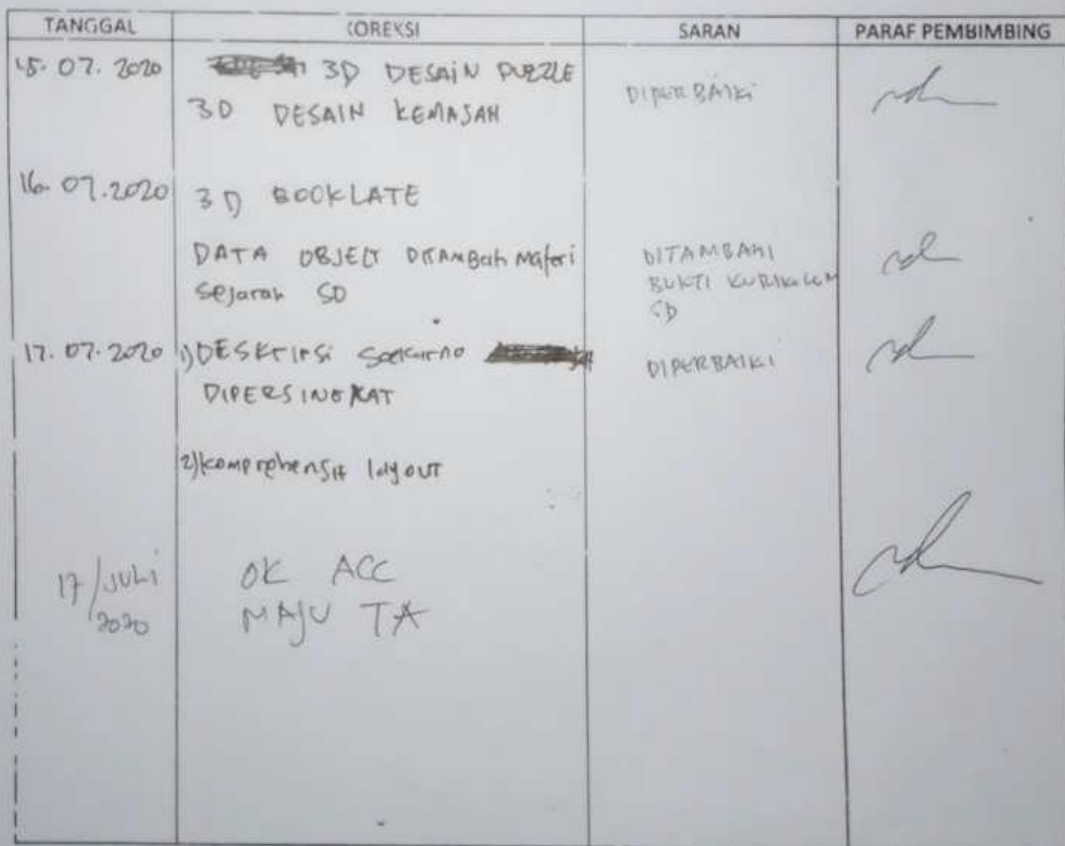 TANGGAL KOREKSI SARAN PARAF PEMBIMBING
15. 07. 2020 3D DESAIN PUZZLE
3D DESAIN KEMASAN DIPERBAIKI
16. 07. 2020 3D BOOKLATE
DATA OBJECT DITAMBAH Materi DITAMBAHI
Sejarah SD BUKTI KURIKULUM
SD
17. 07. 2020 1) DESKRIPSI Soekarno DIPERBAIKI
DIPERSINGKAT
2) komprehensif layout
17/JULI OK ACC
2020 MAJU TA